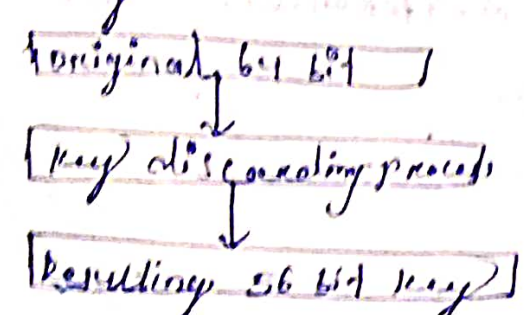 original 64 bit
Key discarding process
Resulting 56 bit key